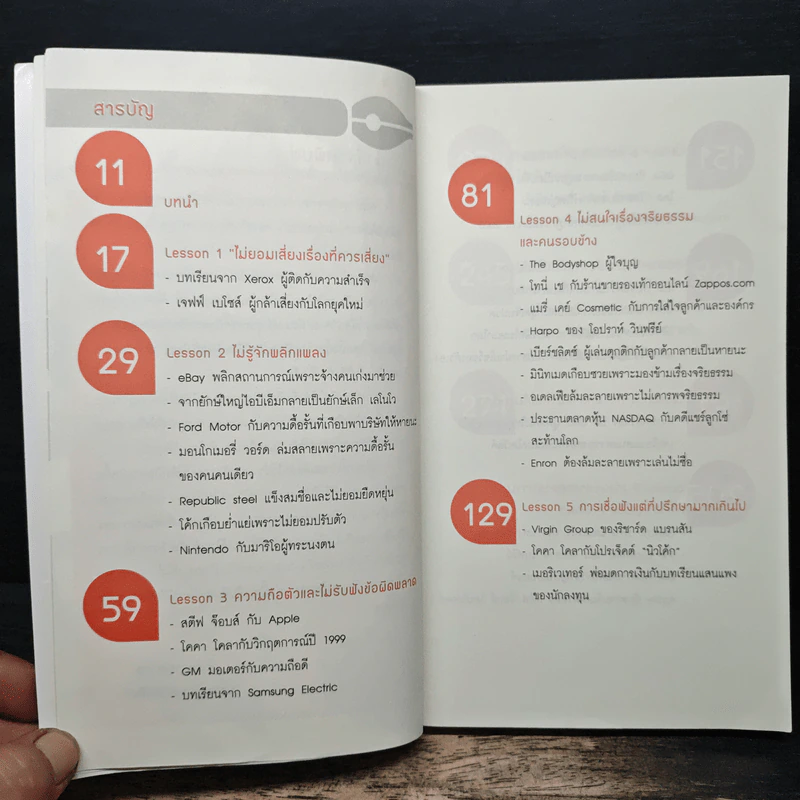 สารบัญ
11
บทนำ
17
Lesson 1 "ไม่ยอมเสี่ยงเรื่องที่ควรเสี่ยง"
- บทเรียนจาก Xerox ผู้ติดกับความสำเร็จ
- เจฟฟ์ เบโซส์ ผู้กล้าเสี่ยงกับโลกยุคใหม่
29
Lesson 2 ไม่รู้จักพลิกแพลง
- eBay พลิกสถานการณ์เพราะจ้างคนเก่งมาช่วย
- จากยักษ์ใหญ่ไอบีเอ็มกลายเป็นยักษ์เล็ก เลโนโว
- Ford Motor กับความดื้อรั้นที่เกือบพาบริษัทให้หายนะ
- มอนโกเมอรี่ วอร์ด ล่มสลายเพราะความดื้อรั้น
ของคนคนเดียว
- Republic steel แข็งสมชื่อและไม่ยอมยืดหยุ่น
- โค้กเกือบย่ำแย่เพราะไม่ยอมปรับตัว
- Nintendo กับมาริโอผู้ทระนงตน
59
Lesson 3 ความถือตัวและไม่รับฟังข้อผิดพลาด
- สตีฟ จ๊อบส์ กับ Apple
- โคคา โคลากับวิกฤตการณ์ปี 1999
- GM มอเตอร์กับความถือดี
- บทเรียนจาก Samsung Electric
81
Lesson 4 ไม่สนใจเรื่องจริยธรรม
และคนรอบข้าง
- The Bodyshop ผู้ใจบุญ
- โทนี่ เช กับร้านขายรองเท้าออนไลน์ Zappos.com
- แมรี่ เคย์ Cosmetic กับการใส่ใจลูกค้าและองค์กร
- Harpo ของ โอปราห์ วินฟรีย์
- เบียร์ชลิตซ์ ผู้เล่นตุกติกกับลูกค้ากลายเป็นหายนะ
- มินิทเมดเกือบซวยเพราะมองข้ามเรื่องจริยธรรม
- อเดลเฟียล้มละลายเพราะไม่เคารพจริยธรรม
- ประธานตลาดหุ้น NASDAQ กับคดีแชร์ลูกโซ่
สะท้านโลก
- Enron ต้องล้มละลายเพราะเล่นไม่ซื่อ
129
Lesson 5 การเชื่อฟังแต่ที่ปรึกษามากเกินไป
- Virgin Group ของริชาร์ด แบรนสัน
- โคคา โคลากับโปรเจ็คต์ "นิวโค้ก"
- เมอริเวเทอร์ พ่อมดการเงินกับบทเรียนแสนแพง
ของนักลงทุน